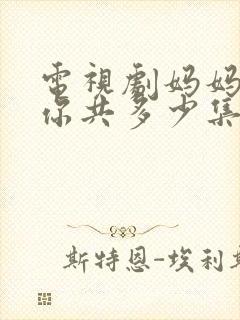 電視劇妈妈
你共多少集
斯特恩-埃利斯